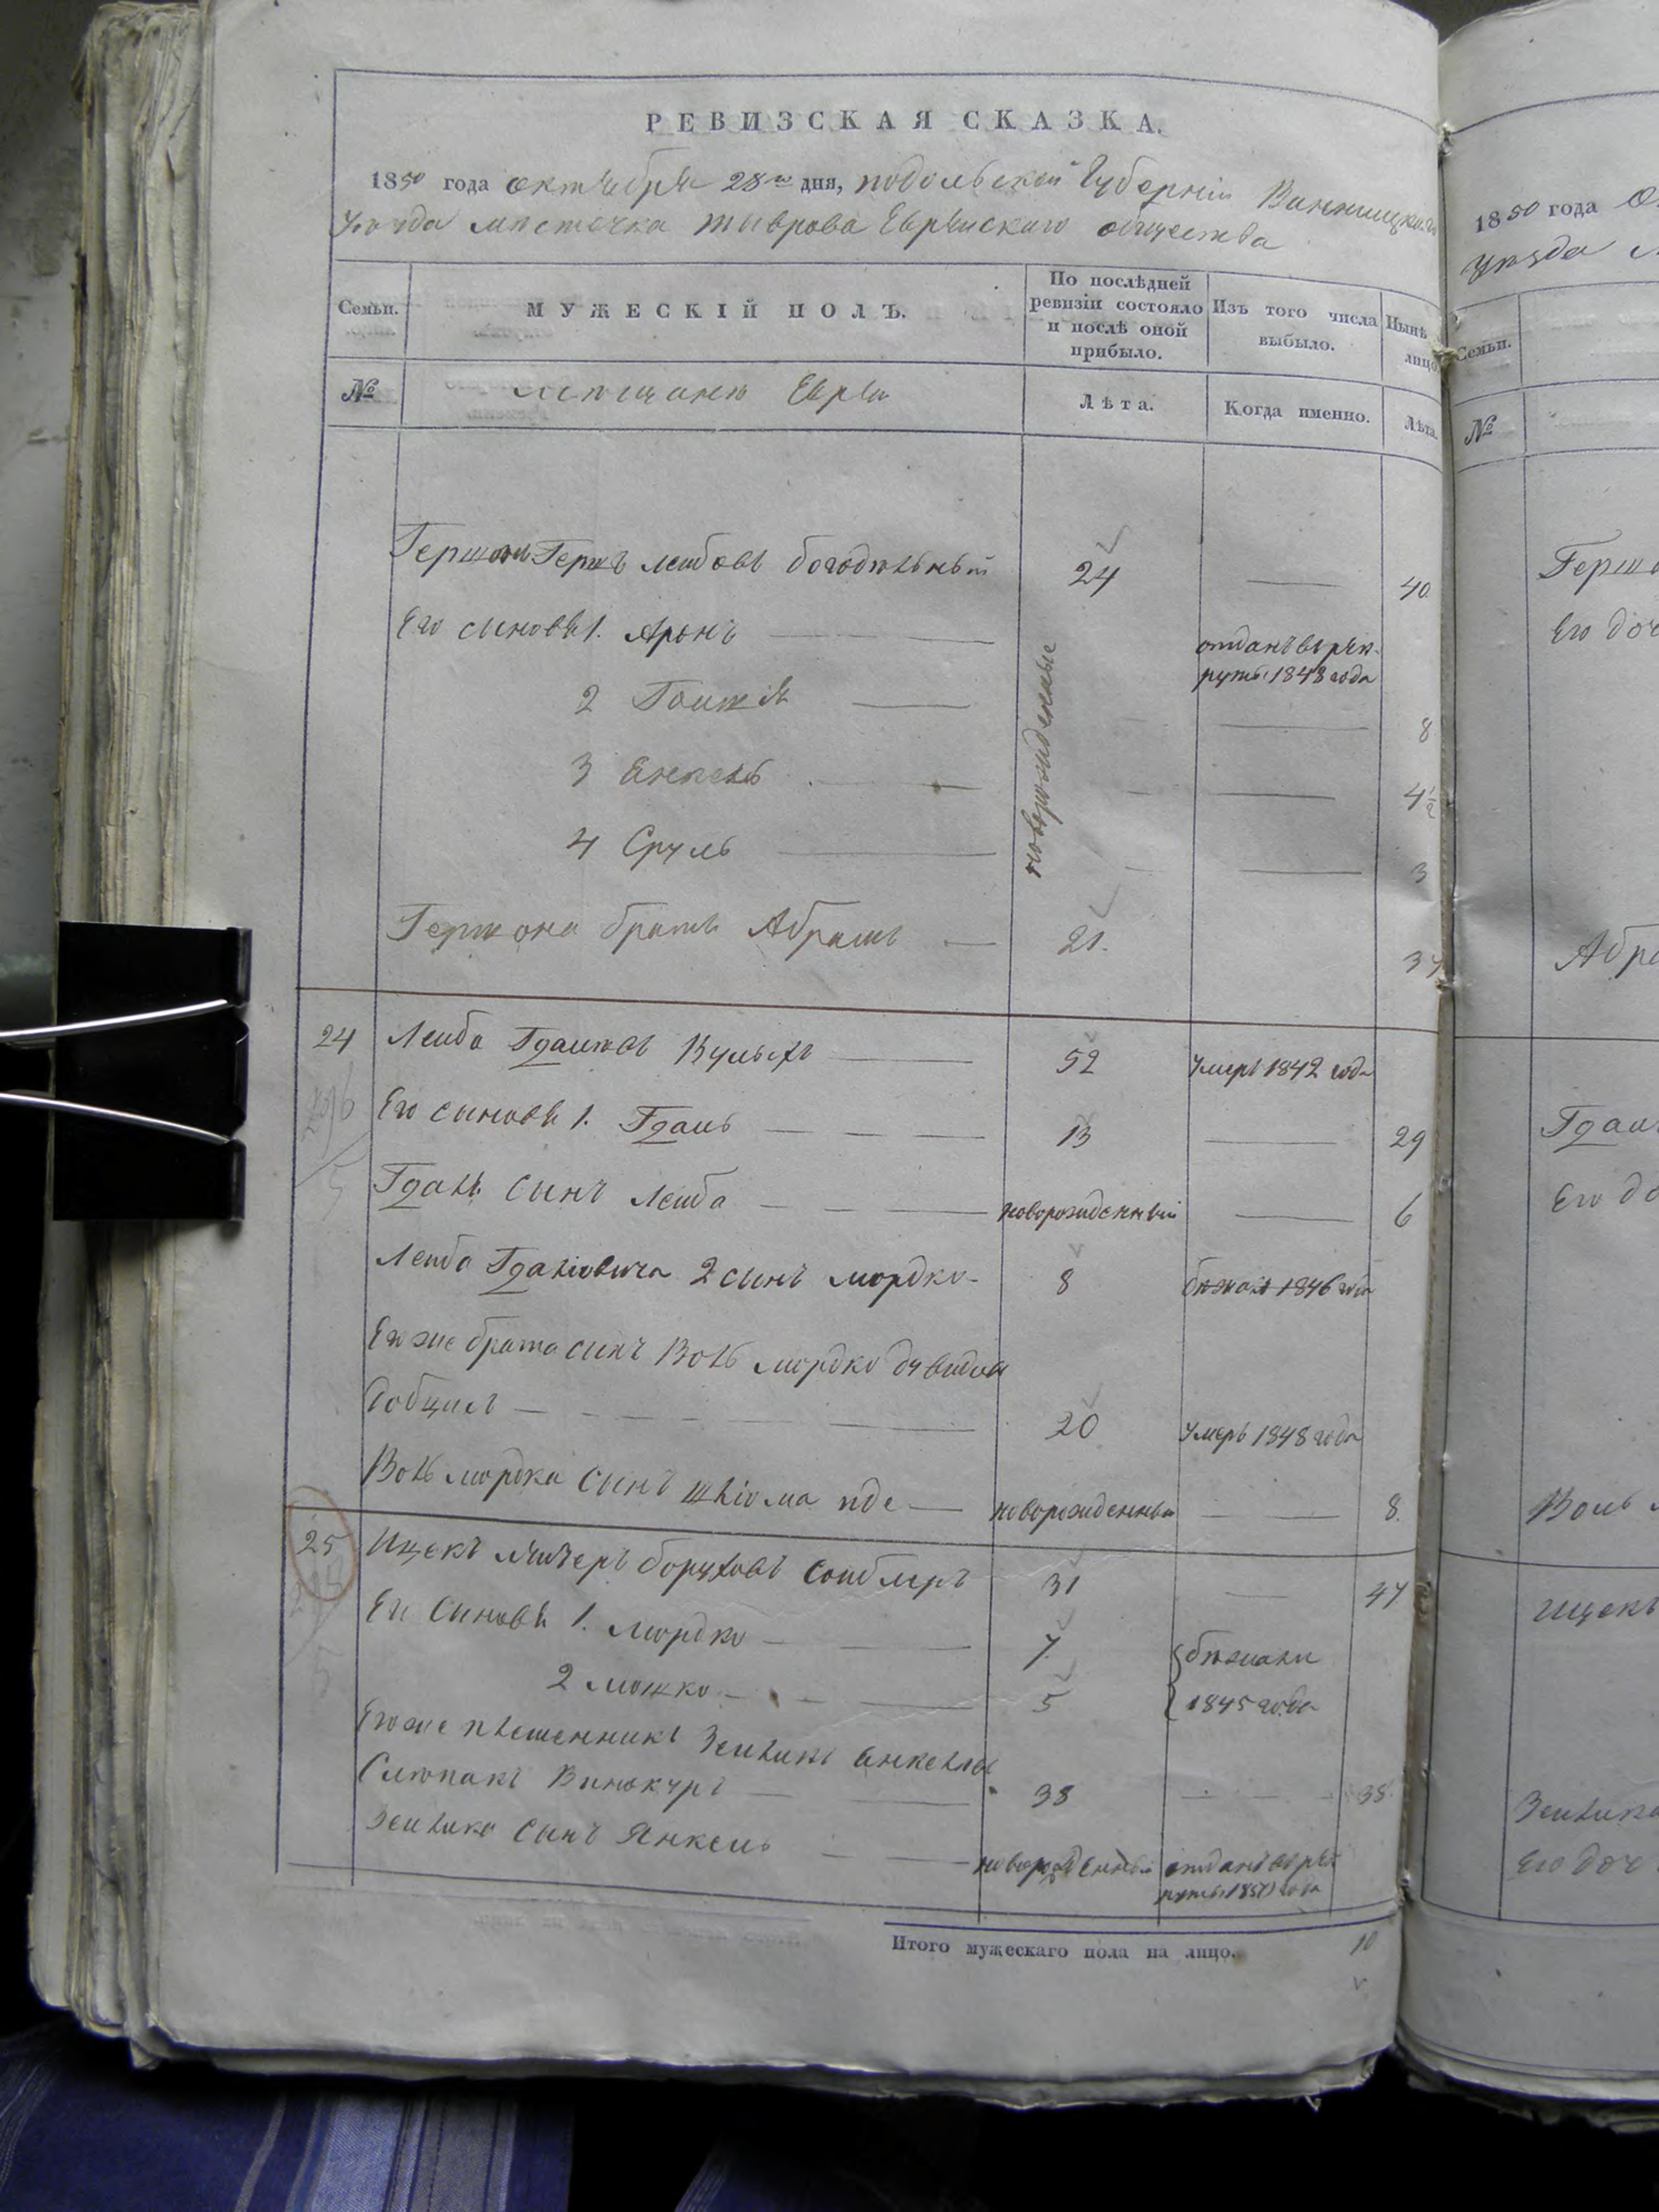 РЕВИЗСКАЯ СКАЗКА.
1850 года октября 28го дня, подольской Губернiи Винницкаго
уѣзда мѣстечка тыврова Еврейскаго общества
Семьи.
МУЖЕСКІЙ ПОЛЪ.
По послѣдней ревизіи состояло и послѣ оной прибыло.
Изъ того числа выбыло.
Нынѣ лицо
№
мѣщане Евреи
Лѣта.
Когда именно.
Лѣта.
Гершонъ Гершъ лейбовъ богодѣльный 24 40
Его сыновья 1. Аронъ отданъ въ рек-
руты 1848 года
новорожденные
2 8
3 Янкель 4½
4 Сруль 3
Гершона братъ Абрамъ 21. 37
24 Лейба 52 умеръ 1842 года
Его сыновья 1. Гдаль 13 29
Гдаля сынъ лейба новорожденный 6
Лейба Гдаліовича 2 сынъ мордко 8 бѣжалъ 1846 года
Его же брата сынъ Воль мордко давидов
20 умеръ 1848 года
Воль мордка сынъ шліома новорожденный 8.
25 Ицекъ боруховъ 31 47
Его Сыновья 1. мордко 7. бѣжали
2 мошко 5 1845 года
Его же племенникъ Зейликъ Янкелев
Слюпакъ Винокуръ 38 38
Зейлика сынъ Янкель новорожденный отданъ въ рек
руты 1850 года
Итого мужескаго пола на лицо. 10
1850 года
уѣзда
Семьи.
№
Его доч
Абра
Его до
Воль
Ицекъ
Зейлика
Его доч